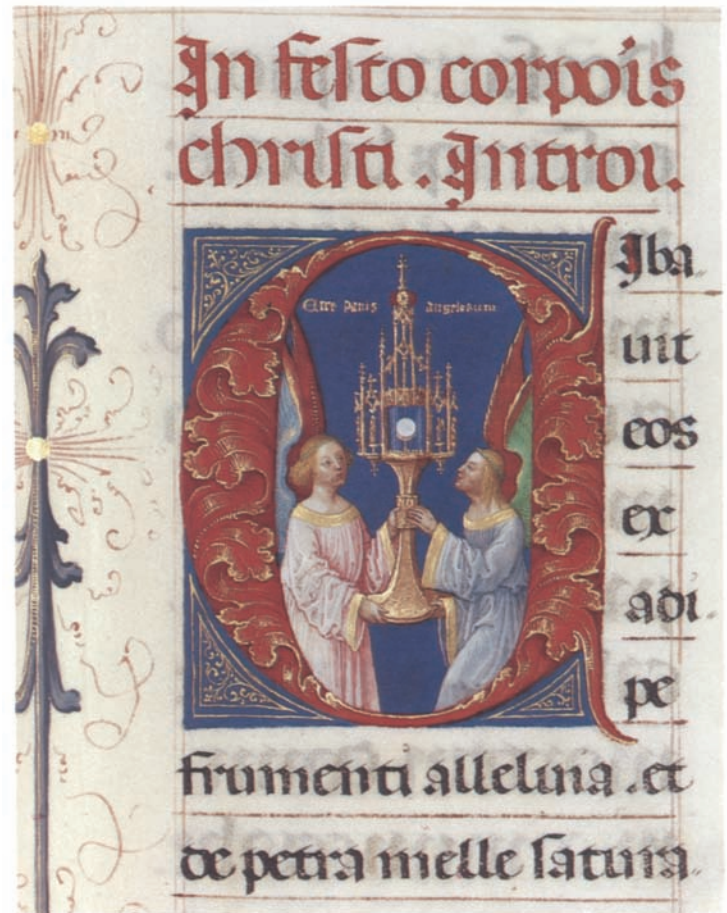 In festo corpois
christi . Introi.
Ecce panis angelorum
C Iba
uit
eos
ex
adi
pe
frumenti alleluia . et
de petra melle satura